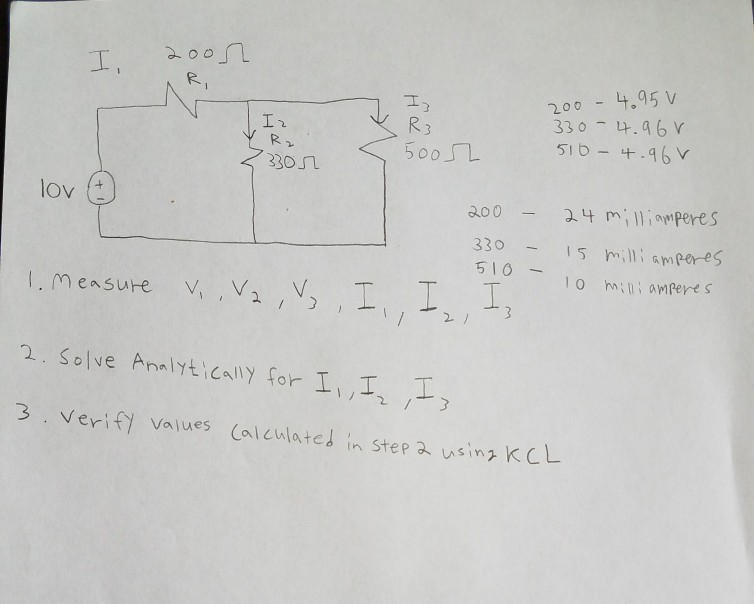 I1 200Ω
R1
I2
R2
330Ω
I3
R3
500Ω
10V
+
-
200 - 4.95 V
330 - 4.96 V
510 - 4.96 V
200 - 24 milliamperes
330 - 15 milliamperes
510 - 10 milliamperes
1. Measure V1, V2, V3, I1, I2, I3
2. Solve Analytically for I1, I2, I3
3. Verify values Calculated in step 2 using KCL